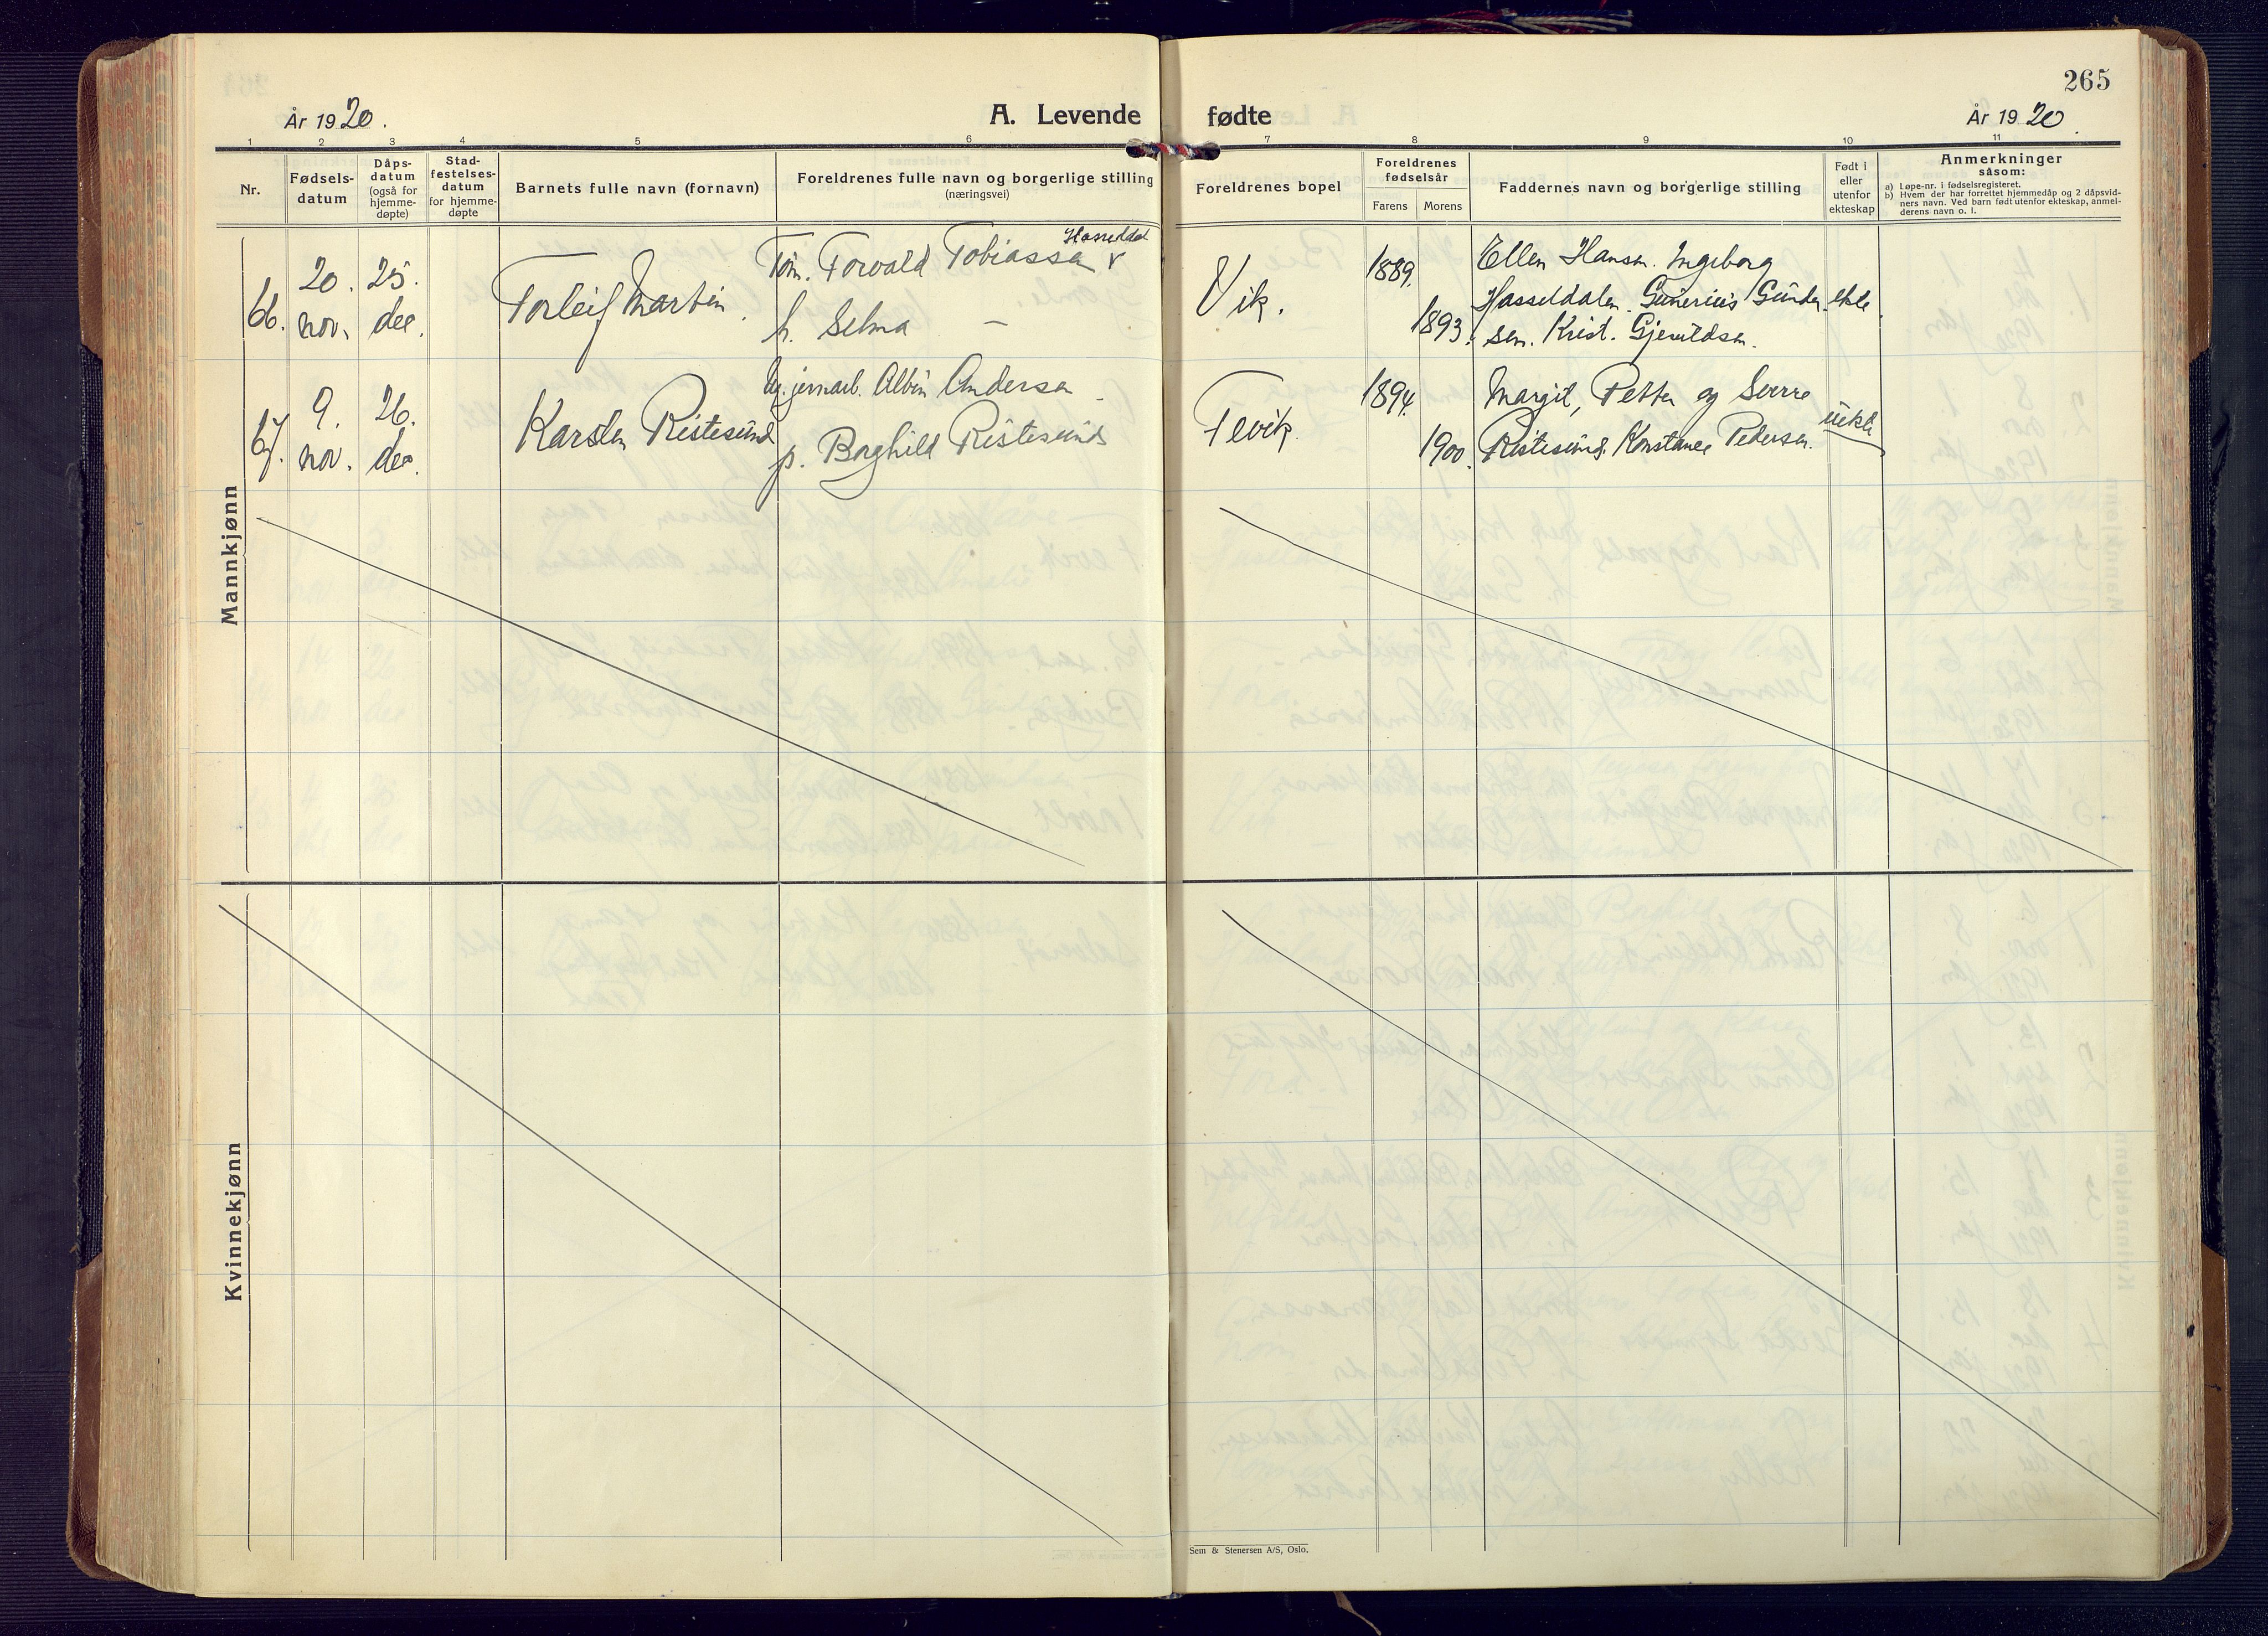 265
År 1920.
A. Levende fødte
År 1920.
1 2 3 4 5 6 7 8 9 10 11
Nr.
Fødsels-
datum
Dåps-
datum
(også for
hjemme-
døpte)
Stad-
festelses-
datum
for hjemme-
døpte
Barnets fulle navn (fornavn)
Foreldrenes fulle navn og borgerlige stilling
(næringsvei)
Foreldrenes bopel
Foreldrenes
fødselsår
Farens Morens
Faddernes navn og borgerlige stilling
Født i
eller
utenfor
ekteskap
Anmerkninger
såsom:
a) Løpe-nr. i fødselsregisteret.
b) Hvem der har forrettet hjemmedåp og 2 dåpsvid-
ners navn. Ved barn født utenfor ekteskap, anmel-
derens navn o. l.
Mannkjønn
66.
20.
nov.
25.
des.
Torleif Martin.
Hasseldal
Töm. Torvald Tobiassen
h. Selma —
Vik.
1889.
1893.
Ellen Hansen. Ingeborg
Hasseldalen. Gunerius Gunder-
sen. Krist. Gjeruldsen.
ekte
67.
9.
nov.
26.
des.
Karsten Ristesund
Ug. jernarb. Albin Andersen
p. Borghild Ristesund
Fevik.
1894.
1900.
Margit, Petter og Sverre
Ristesund. Konstance Pedersen.
uekte
Kvinnekjønn
Sem & Stenersen A/S, Oslo.